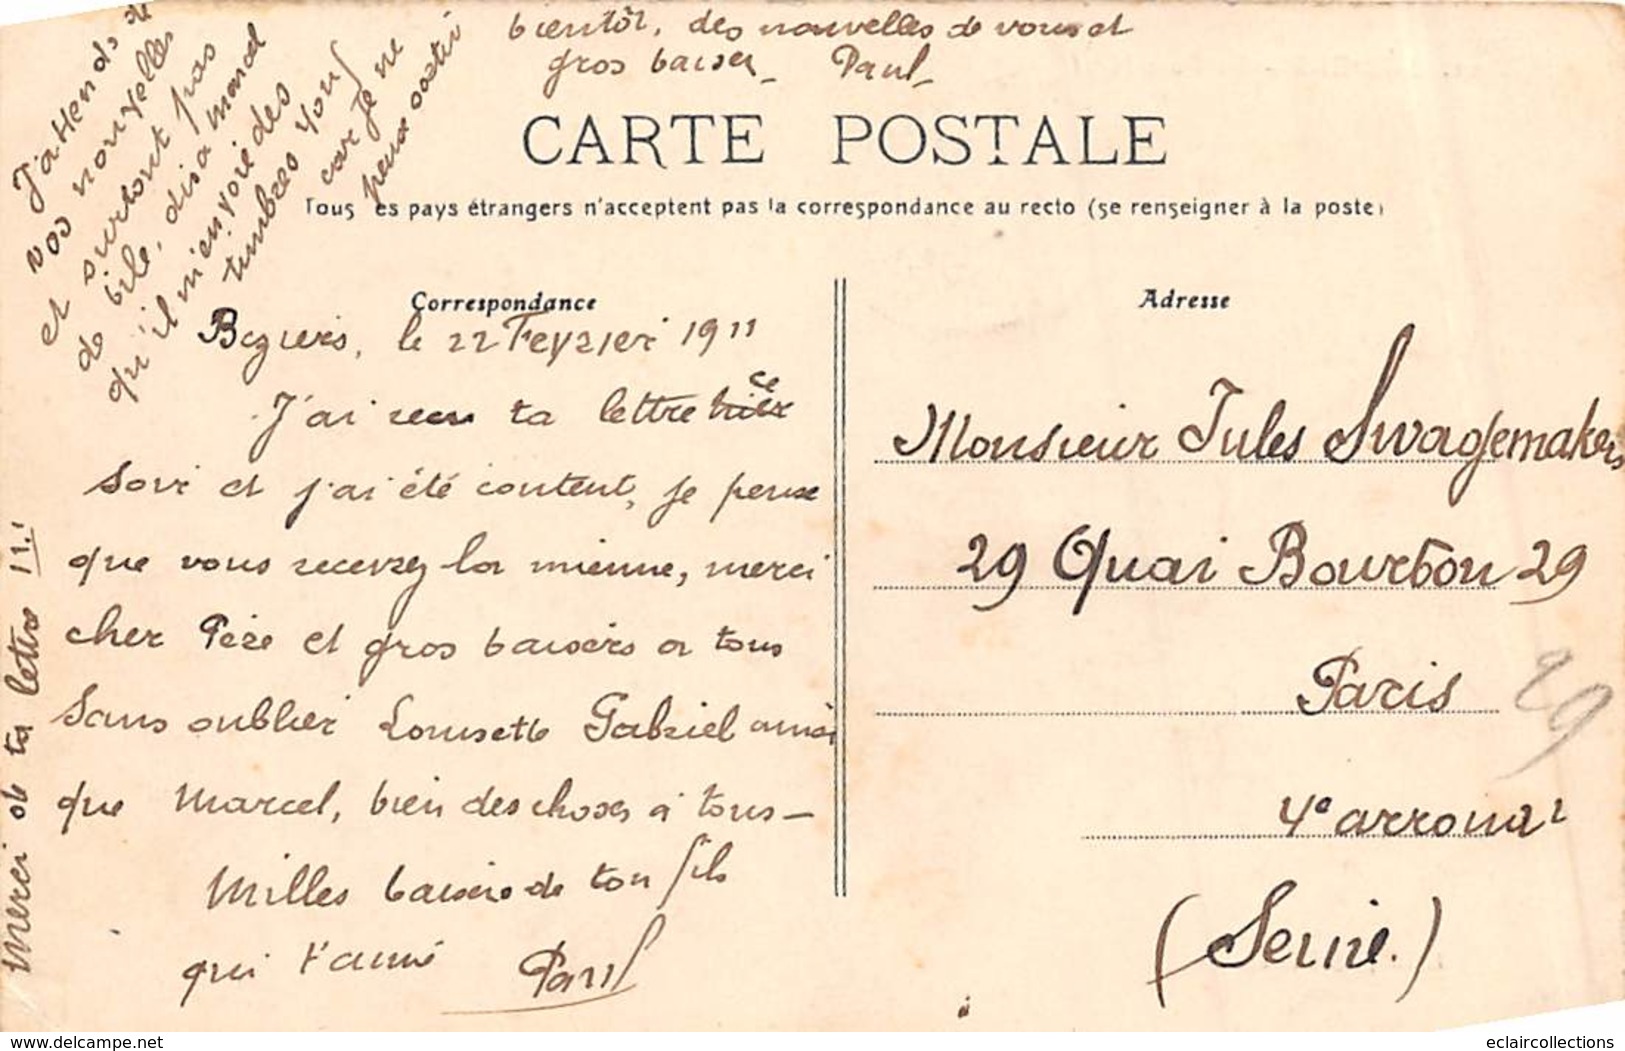 bientôt, des nouvelles de vous et
gros baiser_ Paul_
J'attends de
vos nouvelles
et surtout pas
de bile, dis à Marcel
qu'il m'envoie des
timbres vous
car je ne
peux sortir
CARTE POSTALE
Tous les pays étrangers n'acceptent pas la correspondance au recto (se renseigner à la poste)
Correspondance
Adresse
Beziers, le 22 Fevrier 1911
J'ai recu ta lettre hier ce
soir et j'ai été content, je pense
que vous recevrez la mienne, merci
cher Père et gros baisers a tous
Sans oublier Lousette Gabriel ainsi
que Marcel, bien des choses à tous_
Milles baisers de ton fils
qui t'aime Paul
Merci de ta lettre 11.
Monsieur Jules Swagemakers
29 Quai Bourbon 29
Paris
4e arrondt
(Seine.)
29
Delcampe.net
eclaircollections